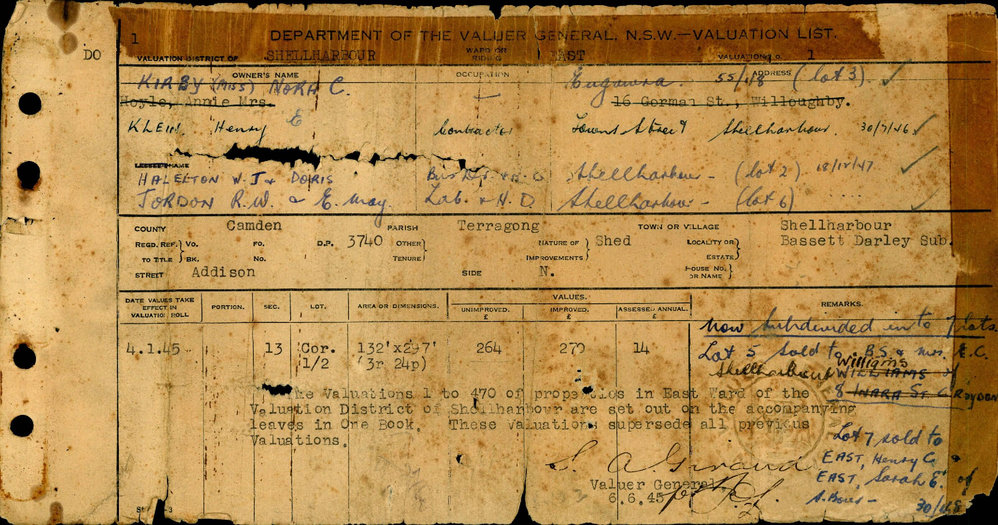 1
DEPARTMENT OF THE VALUER GENERAL, N.S.W.—VALUATION LIST.
DO
VALUATION DISTRICT OF SHELLHARBOUR WARD OR RIDING EAST VALUATION No. 1
OWNER'S NAME OCCUPATION ADDRESS
KIRBY (MISS) NORA C. 55/48 (Lot 3)
Royle, Annie Mrs. 16 Gorman St., Willoughby.
KLEIN Henry E Contractor Towns Street Shellharbour 30/7/46
LESSEE'S NAME
W. J. & DORIS Shellharbour - (Lot 2) 18/12/47
JORDON R.W. & E. May Lab. & H.D Shellharbour - (Lot 6)
COUNTY Camden PARISH Terragong TOWN OR VILLAGE Shellharbour
REGD. REF. TO TITLE Vo. Fo. Bk. No. D.P. 3740 OTHER TENURE NATURE OF IMPROVEMENTS Shed LOCALITY OR ESTATE Bassett Darley Sub.
STREET Addison SIDE N. HOUSE No. OR NAME
DATE VALUES TAKE EFFECT IN VALUATION ROLL PORTION. SEC. LOT. AREA OR DIMENSIONS. VALUES. REMARKS.
UNIMPROVED. £ IMPROVED. £ ASSESSED ANNUAL. £
now subdivided into 7 lots
4.1.45 13 Cor. 1/2 132'x297' (3r 24p) 264 279 14
Lot 5 sold to B.S. & Mrs. E.C.
Williams
Shellharbour WILLIAMS of
8 St. Croydon
The Valuations 1 to 470 of properties in East Ward of the
Valuation District of Shellharbour are set out on the accompanying
leaves in One Book. These Valuations supersede all previous
Valuations.
Lot 7 sold to
EAST, Henry C &
EAST, Sarah E. of
Valuer General.
6.6.45